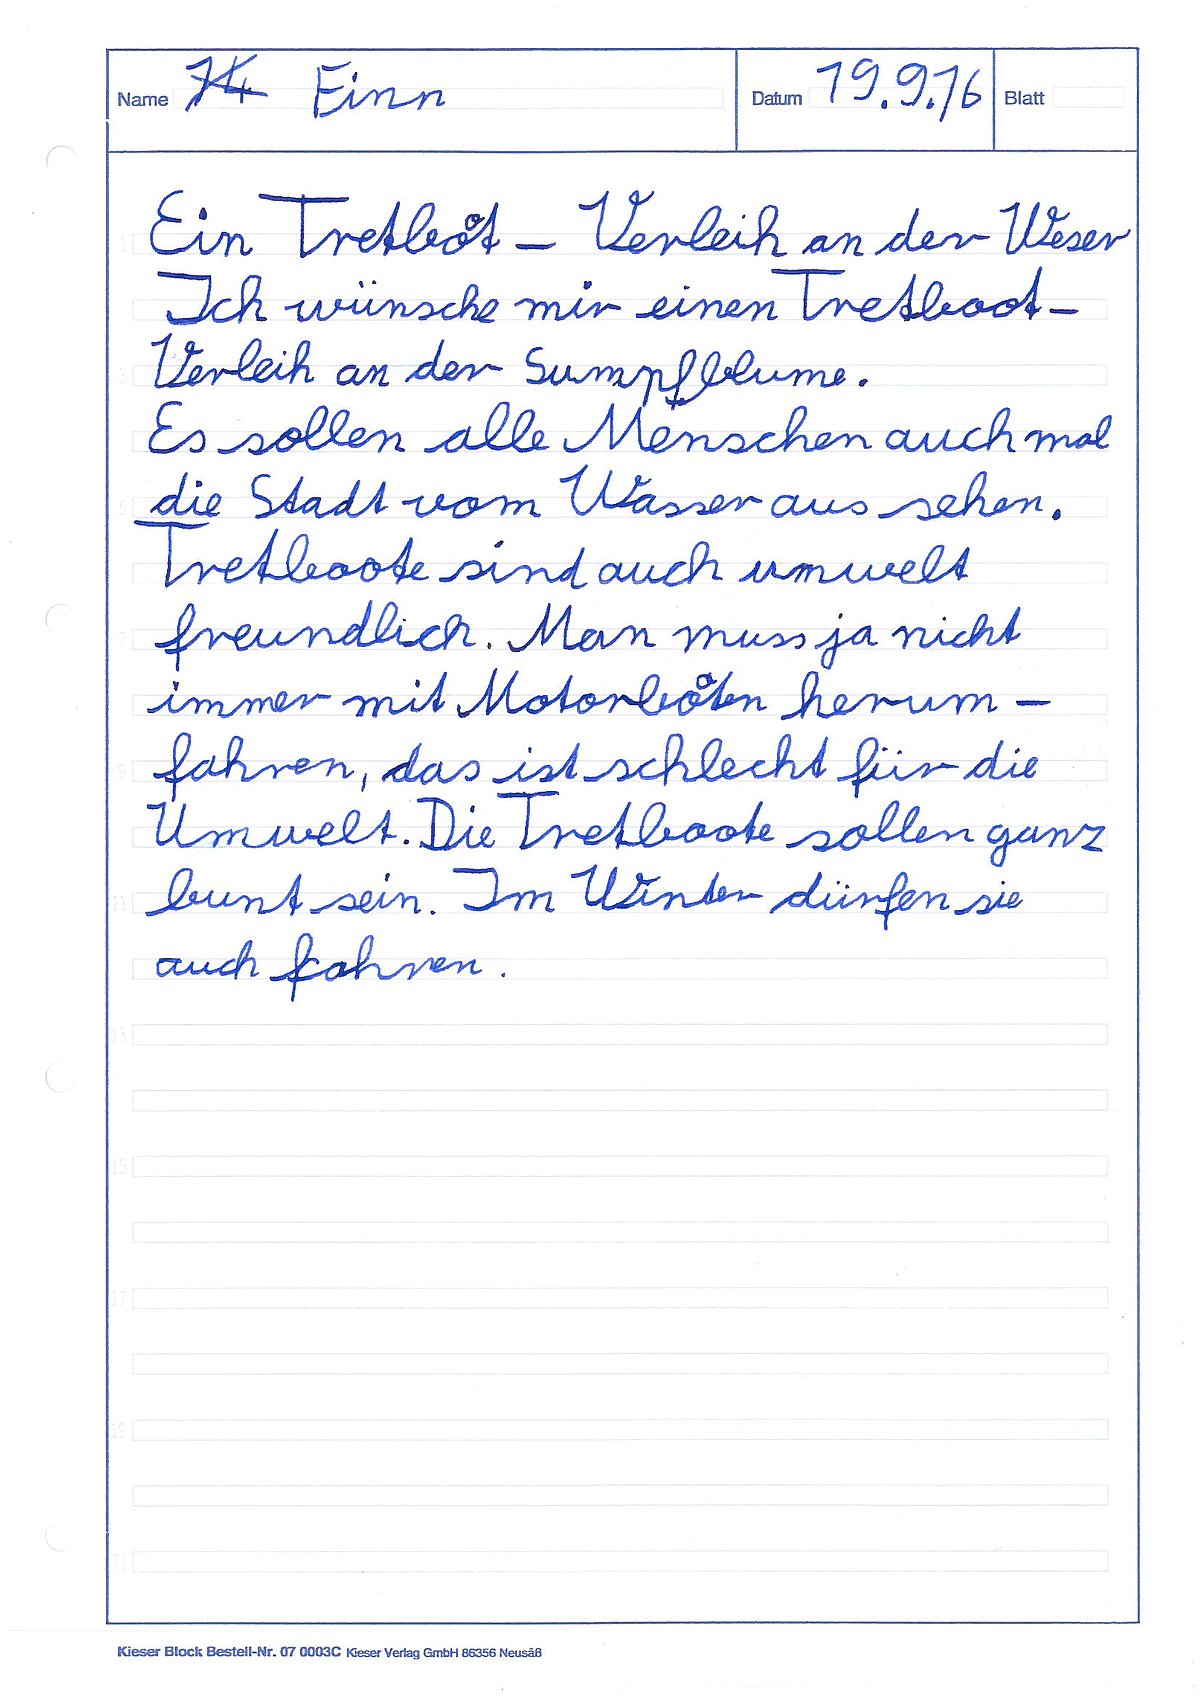 Name 74 Einn Datum 19.9.16 Blatt
Ein Tretboot – Verleih an der Weser
Ich wünsche mir einen Tretboot-
Verleih an der Sumpfblume.
Es sollen alle Menschen auch mal
die Stadt vom Wasser aus sehen.
Tretboote sind auch umwelt
freundlich. Man muss ja nicht
immer mit Motorbooten herum-
fahren, das ist schlecht für die
Umwelt. Die Tretboote sollen ganz
bunt sein. Im Winter dürfen sie
auch fahren.
Kieser Block Bestell-Nr. 07 0003C Kieser Verlag GmbH 86356 Neusäß